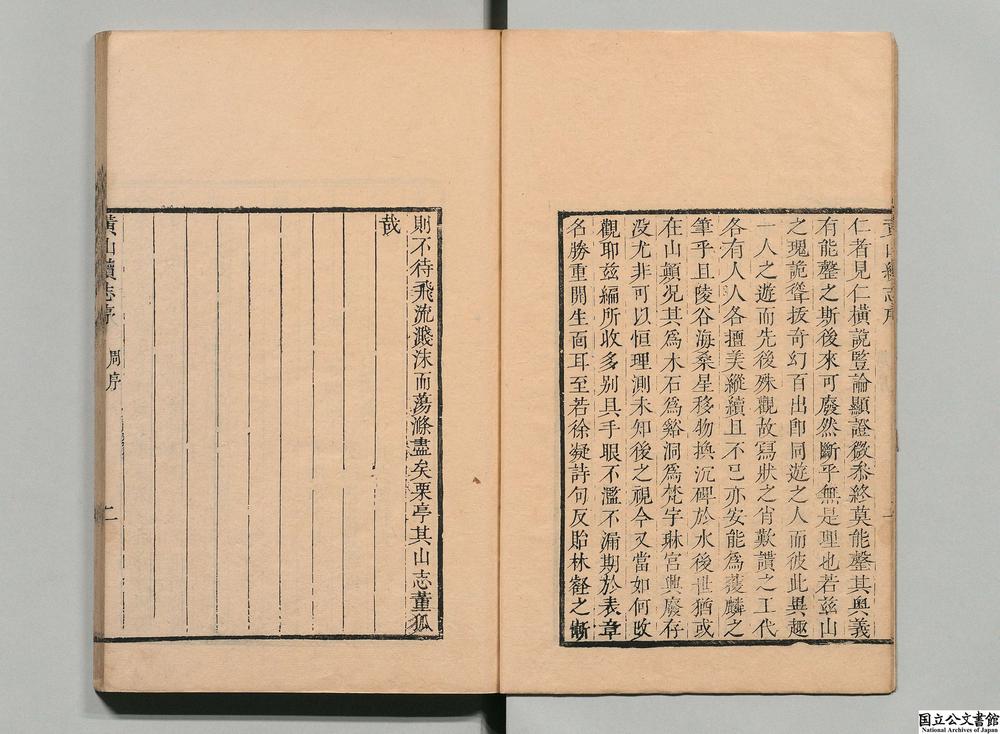 仁者見仁橫說豎論顯證微參終莫能罄其輿義
有能罄之斯後來可廢然斷乎無是理也若茲山
之瑰詭聳拔奇幻百出即同遊之人而彼此異趣
一人之遊而先後殊觀故寫狀之肖歎讚之工代
各有人人各擅美縱續且不已亦安能為獲麟之
筆乎且陵谷海桑星移物換沉碑於水後世猶或
在山顛況其為木石為谿洞為梵宇琳宮興廢存
沒尤非可以恒理測未知後之視今又當如何改
觀耶茲編所收多别具手眼不濫不漏期於表章
名勝重開生面耳至若徐凝詩句反貽林壑之慚
則不待飛流濺沫而蕩滌盡矣栗亭其山志董狐
哉
黃山續志序 周序 二
国立公文書館
National Archives of Japan